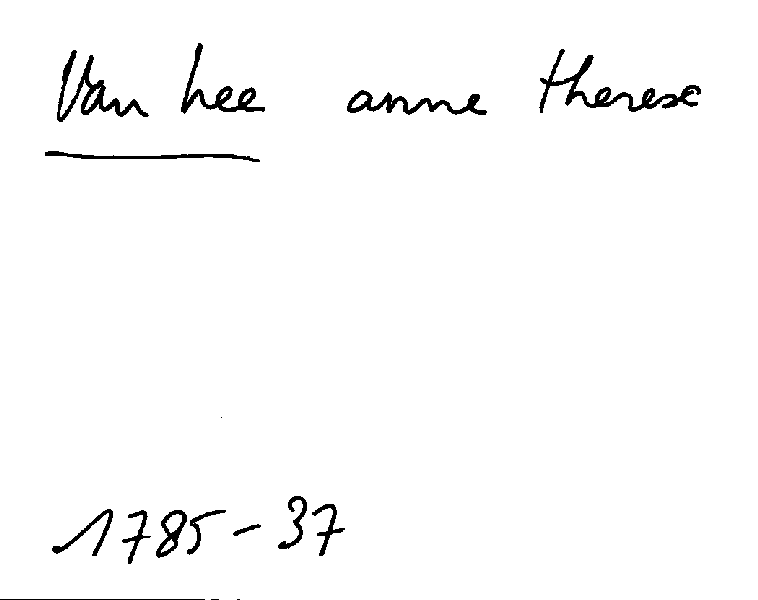 Van hee anne therese
1785-37